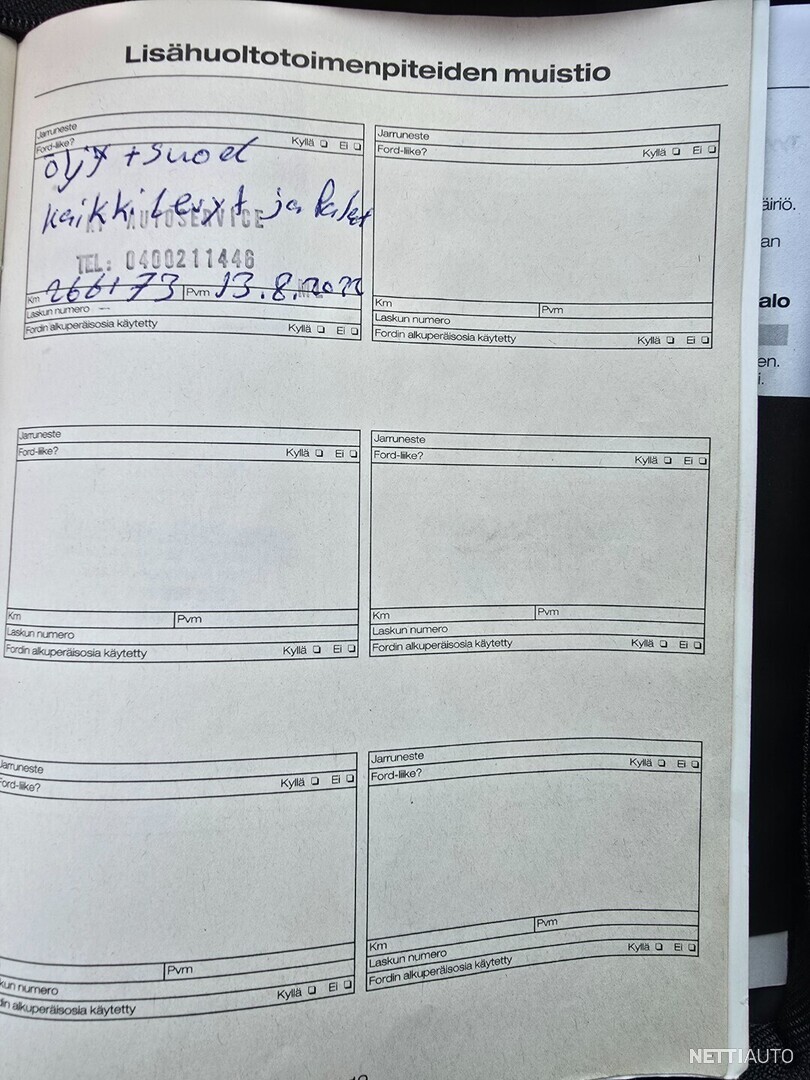 Lisähuoltotoimenpiteiden muistio
Jarruneste
Ford-liike? Kyllä Ei
öljy + suod
kaikki levyt ja palat
AUTOSERVICE
TEL: 0400211446
Km 266173 Pvm 13.8.2022
Laskun numero
Fordin alkuperäisosia käytetty Kyllä Ei
Jarruneste
Ford-liike? Kyllä Ei
Km Pvm
Laskun numero
Fordin alkuperäisosia käytetty Kyllä Ei
Jarruneste
Ford-liike? Kyllä Ei
Km Pvm
Laskun numero
Fordin alkuperäisosia käytetty Kyllä Ei
Jarruneste
Ford-liike? Kyllä Ei
Km Pvm
Laskun numero
Fordin alkuperäisosia käytetty Kyllä Ei
Jarruneste
Ford-liike? Kyllä Ei
Pvm
kun numero
din alkuperäisosia käytetty Kyllä Ei
Jarruneste
Ford-liike? Kyllä Ei
Km Pvm
Laskun numero
Fordin alkuperäisosia käytetty Kyllä Ei
äiriö.
an
alo
en.
i.
NETTIAUTO